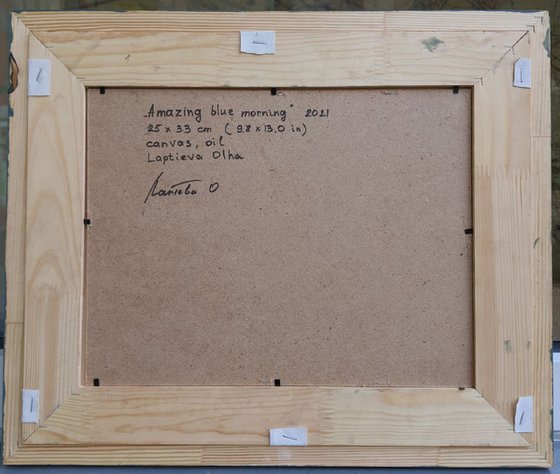 „Amazing blue morning" 2021
25 x 33 cm (9.8 x 13.0 in)
canvas, oil
Laptieva Olha
Лаптєва О